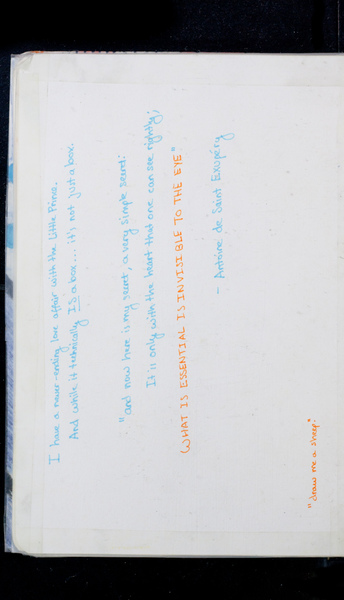 I have a never-ending love affair with the Little Prince.
And while it technically IS a box... it's not just a box.
"and now here is my secret, a very simple secret:
It is only with the heart that one can see rightly;
WHAT IS ESSENTIAL IS INVISIBLE TO THE EYE"
- Antoine de Saint Exupéry
"draw me a sheep."